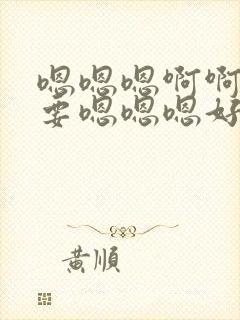 嗯嗯嗯啊啊
要嗯嗯嗯好
黄順